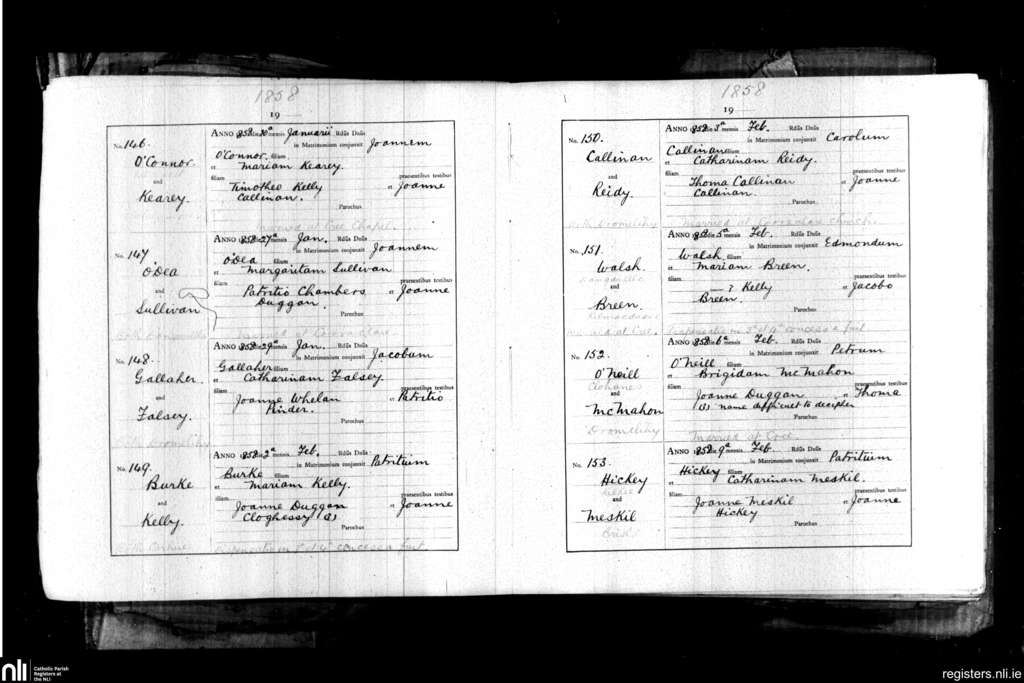 1858
19
No. 146.
O'Connor.
and
Kearey.
ANNO 1858 die 20a mensis Januarii Rdus Dnus
in Matrimonium conjunxit Joannem
O'Connor. filium
et Mariam Kearey.
filiam praesentibus testibus
Timotheo Kelly et Joanne
Callinan.
Parochus
married at Cree Chapel.
No. 147
O'Dea
and
Sullivan
ANNO 1858 die 27a mensis Jan. Rdus Dnus
in Matrimonium conjunxit Joannem
O'Dea filium
et Margaritam Sullivan
filiam praesentibus testibus
Patritio Chambers et Joanne
Duggan.
Parochus
married at
No. 148.
Gallaher.
and
Falsey.
ANNO 1858 die 29a mensis Jan. Rdus Dnus
in Matrimonium conjunxit Jacobum
Gallaher filium
et Catharinam Falsey.
filiam praesentibus testibus
Joanne Whelan et Patritio
Kinder.
Parochus
No. 149.
Burke
and
Kelly.
ANNO 1858 die 2a mensis Feb. Rdus Dnus
in Matrimonium conjunxit Patritium
Burke filium
et Mariam Kelly.
filiam praesentibus testibus
Joanne Duggan et Joanne
Cloghessy (?)
Parochus
1858
19
No. 150.
Callinan
and
Reidy.
ANNO 1858 die 3a mensis Feb. Rdus Dnus
in Matrimonium conjunxit Carolum
Callinan filium
et Catharinam Reidy.
filiam praesentibus testibus
Thoma Callinan et Joanne
Callinan.
Parochus
married at church.
No. 151.
Walsh.
and
Breen.
married at Cree.
ANNO 1858 die 5a mensis Feb. Rdus Dnus
in Matrimonium conjunxit Edmondum
Walsh. filium
et Mariam Breen.
filiam praesentibus testibus
— ? Kelly et Jacobo
Breen.
Parochus
No. 152
O'Neill
Clohane
and
McMahon
Dromelihy
ANNO 1858 die 6a mensis Feb. Rdus Dnus
in Matrimonium conjunxit Petrum
O'Neill filium
et Brigidam McMahon
filiam praesentibus testibus
Joanne Duggan et Thoma
(?) name difficult to decipher
Parochus
married at Cree
No. 153
Hickey
and
Meskil
ANNO 1858 die 9a mensis Feb. Rdus Dnus
in Matrimonium conjunxit Patritium
Hickey filium
et Catharinam Meskil.
filiam praesentibus testibus
Joanne Meskil et Joanne
Hickey
Parochus
nli Catholic Parish
Registers at
the NLI
registers.nli.ie